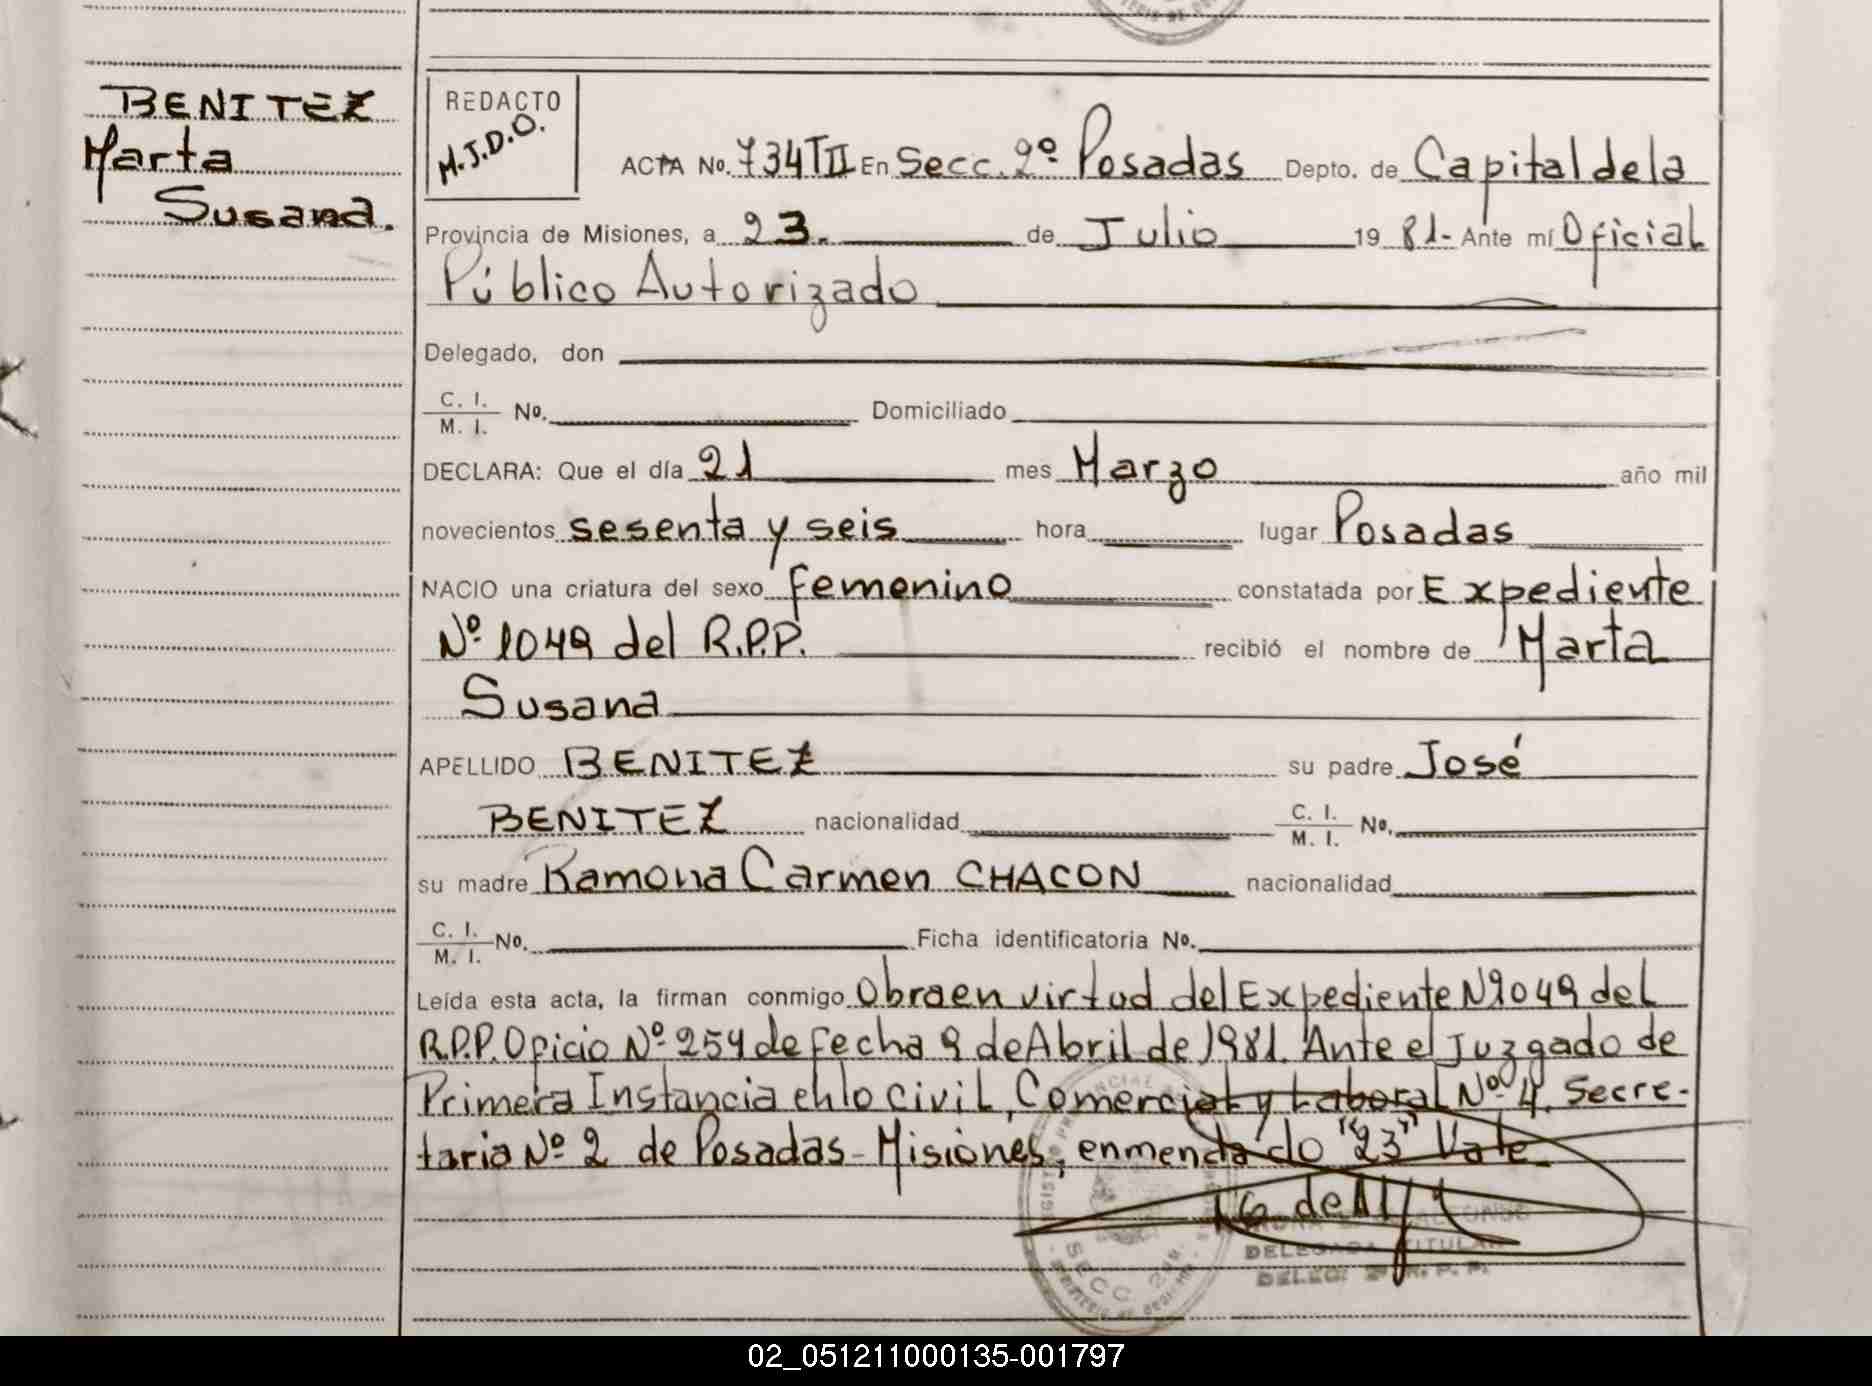 BENITEZ
Marta
Susana.
REDACTO
M.J.D.O.
ACTA No. 734 TII En Secc. 2º Posadas Depto. de Capital de la
Provincia de Misiones, a 23. de Julio 19 81.- Ante mí Oficial
Público Autorizado
Delegado, don
C. I.
M. I. No. Domiciliado
DECLARA: Que el día 21 mes Marzo año mil
novecientos sesenta y seis hora lugar Posadas
NACIO una criatura del sexo femenino constatada por Expediente
Nº 1049 del R.P.P. recibió el nombre de Marta
Susana
APELLIDO BENITEZ su padre José
BENITEZ nacionalidad C. I.
M. I. No.
su madre Ramona Carmen CHACON nacionalidad
C. I.
M. I. No. Ficha identificatoria No.
Leída esta acta, la firman conmigo Obra en virtud del Expediente Nº 1049 del
R.P.P. Oficio Nº 254 de fecha 9 de Abril de 1981. Ante el Juzgado de
Primera Instancia en lo Civil, Comercial y Laboral Nº 4. Secre-
taria Nº 2 de Posadas - Misiones, enmendado "23" Vale
SECC. 2da.
DELEGADA TITULAR
02_051211000135-001797